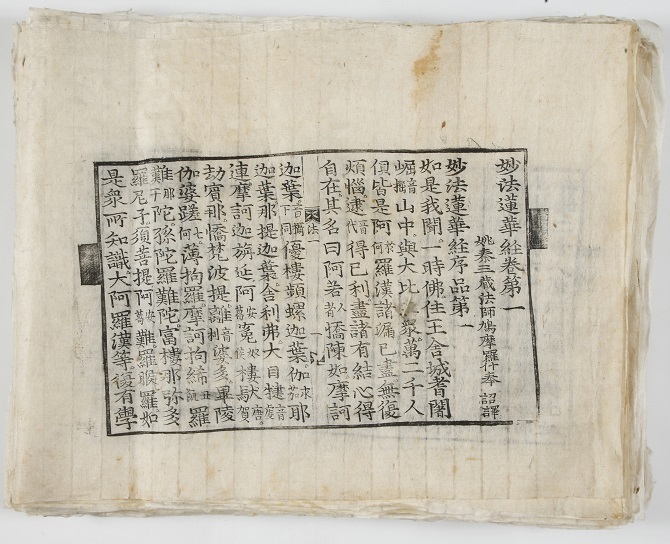 妙法蓮華經卷第一
姚秦三藏法師鳩摩羅什奉 詔譯
妙法蓮華經序品第一
如是我聞一時佛住王舍城耆闍
崛音掘山中與大比衆萬二千人
俱皆是阿於何羅漢諸漏已盡無復
煩惱逮音代得已利盡諸有結心得
自在其名曰阿若人者憍陳如摩訶
法一
迦葉音攝下同優樓頻螺迦葉伽求茄耶
迦葉那提迦葉舍利弗大目犍音虔
連摩訶迦旃延阿安葛㝹奴侯樓馱唐賀
劫賓那憍梵波提離音利婆多畢陵
伽婆蹉七何薄拘羅摩訶拘絺丑羅
難那干陀孫陀羅難陀富樓那弥多
羅尼子須菩提阿安葛難羅睺羅如
是衆所知識大阿羅漢等復有學